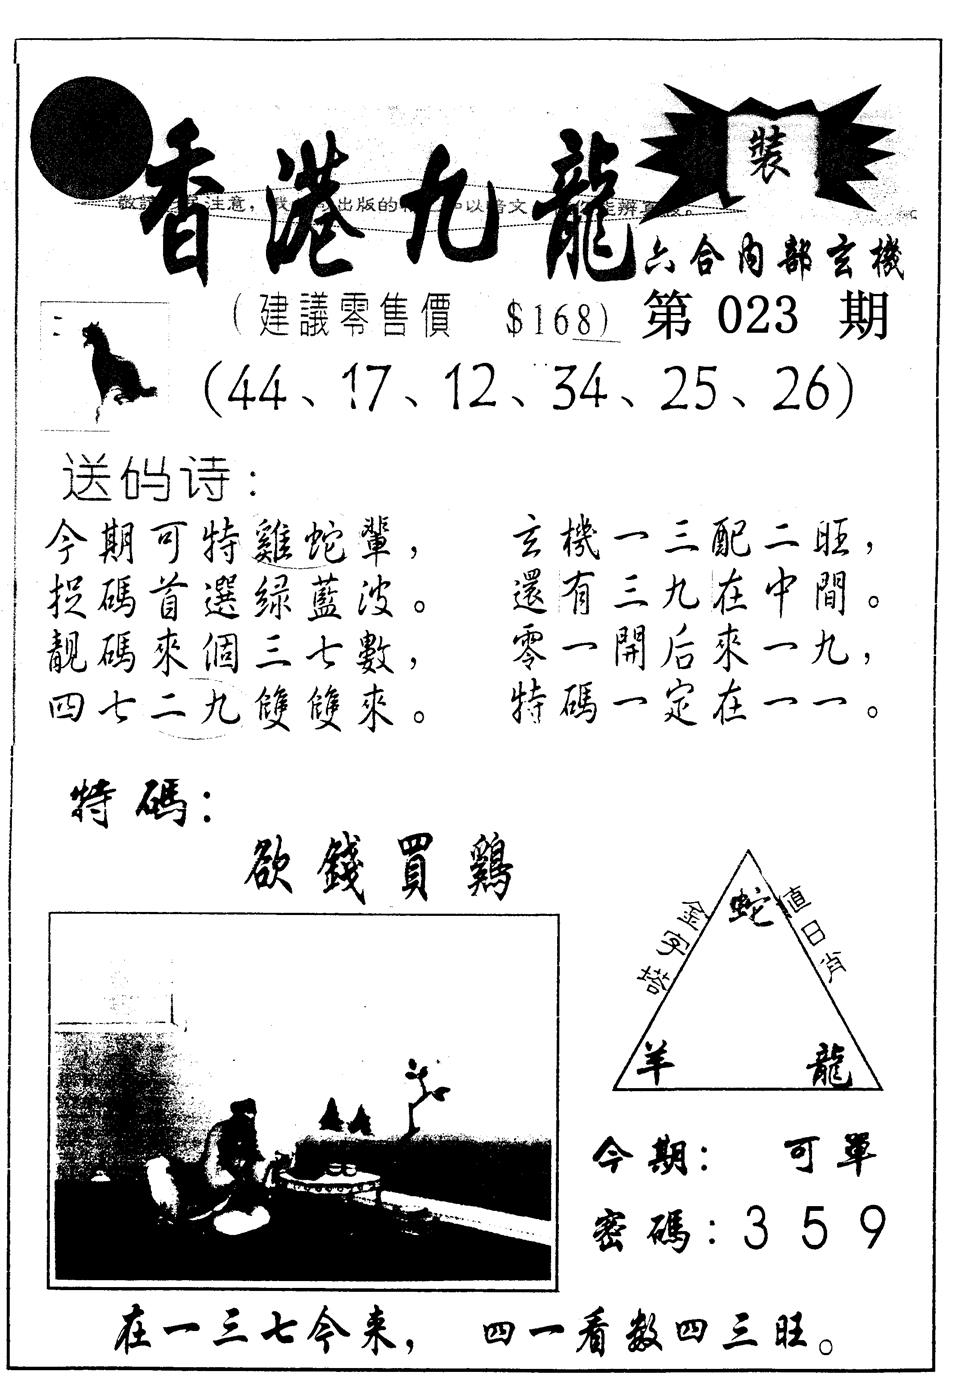 裝
香港九龍
六合内部玄機
（建議零售價 $168）第 023 期
（44、17、12、34、25、26）
送码诗：
今期可特雞蛇輩，
捉碼首選绿藍波。
靚碼來個三七數，
四七二九雙雙來。
玄機一三配二旺，
還有三九在中間。
零一開后來一九，
特碼一定在一一。
特碼：
欲錢買鷄
金字塔
值日肖
蛇
羊 龍
今期： 可單
密碼：3 5 9
在一三七今来， 四一看数四三旺。